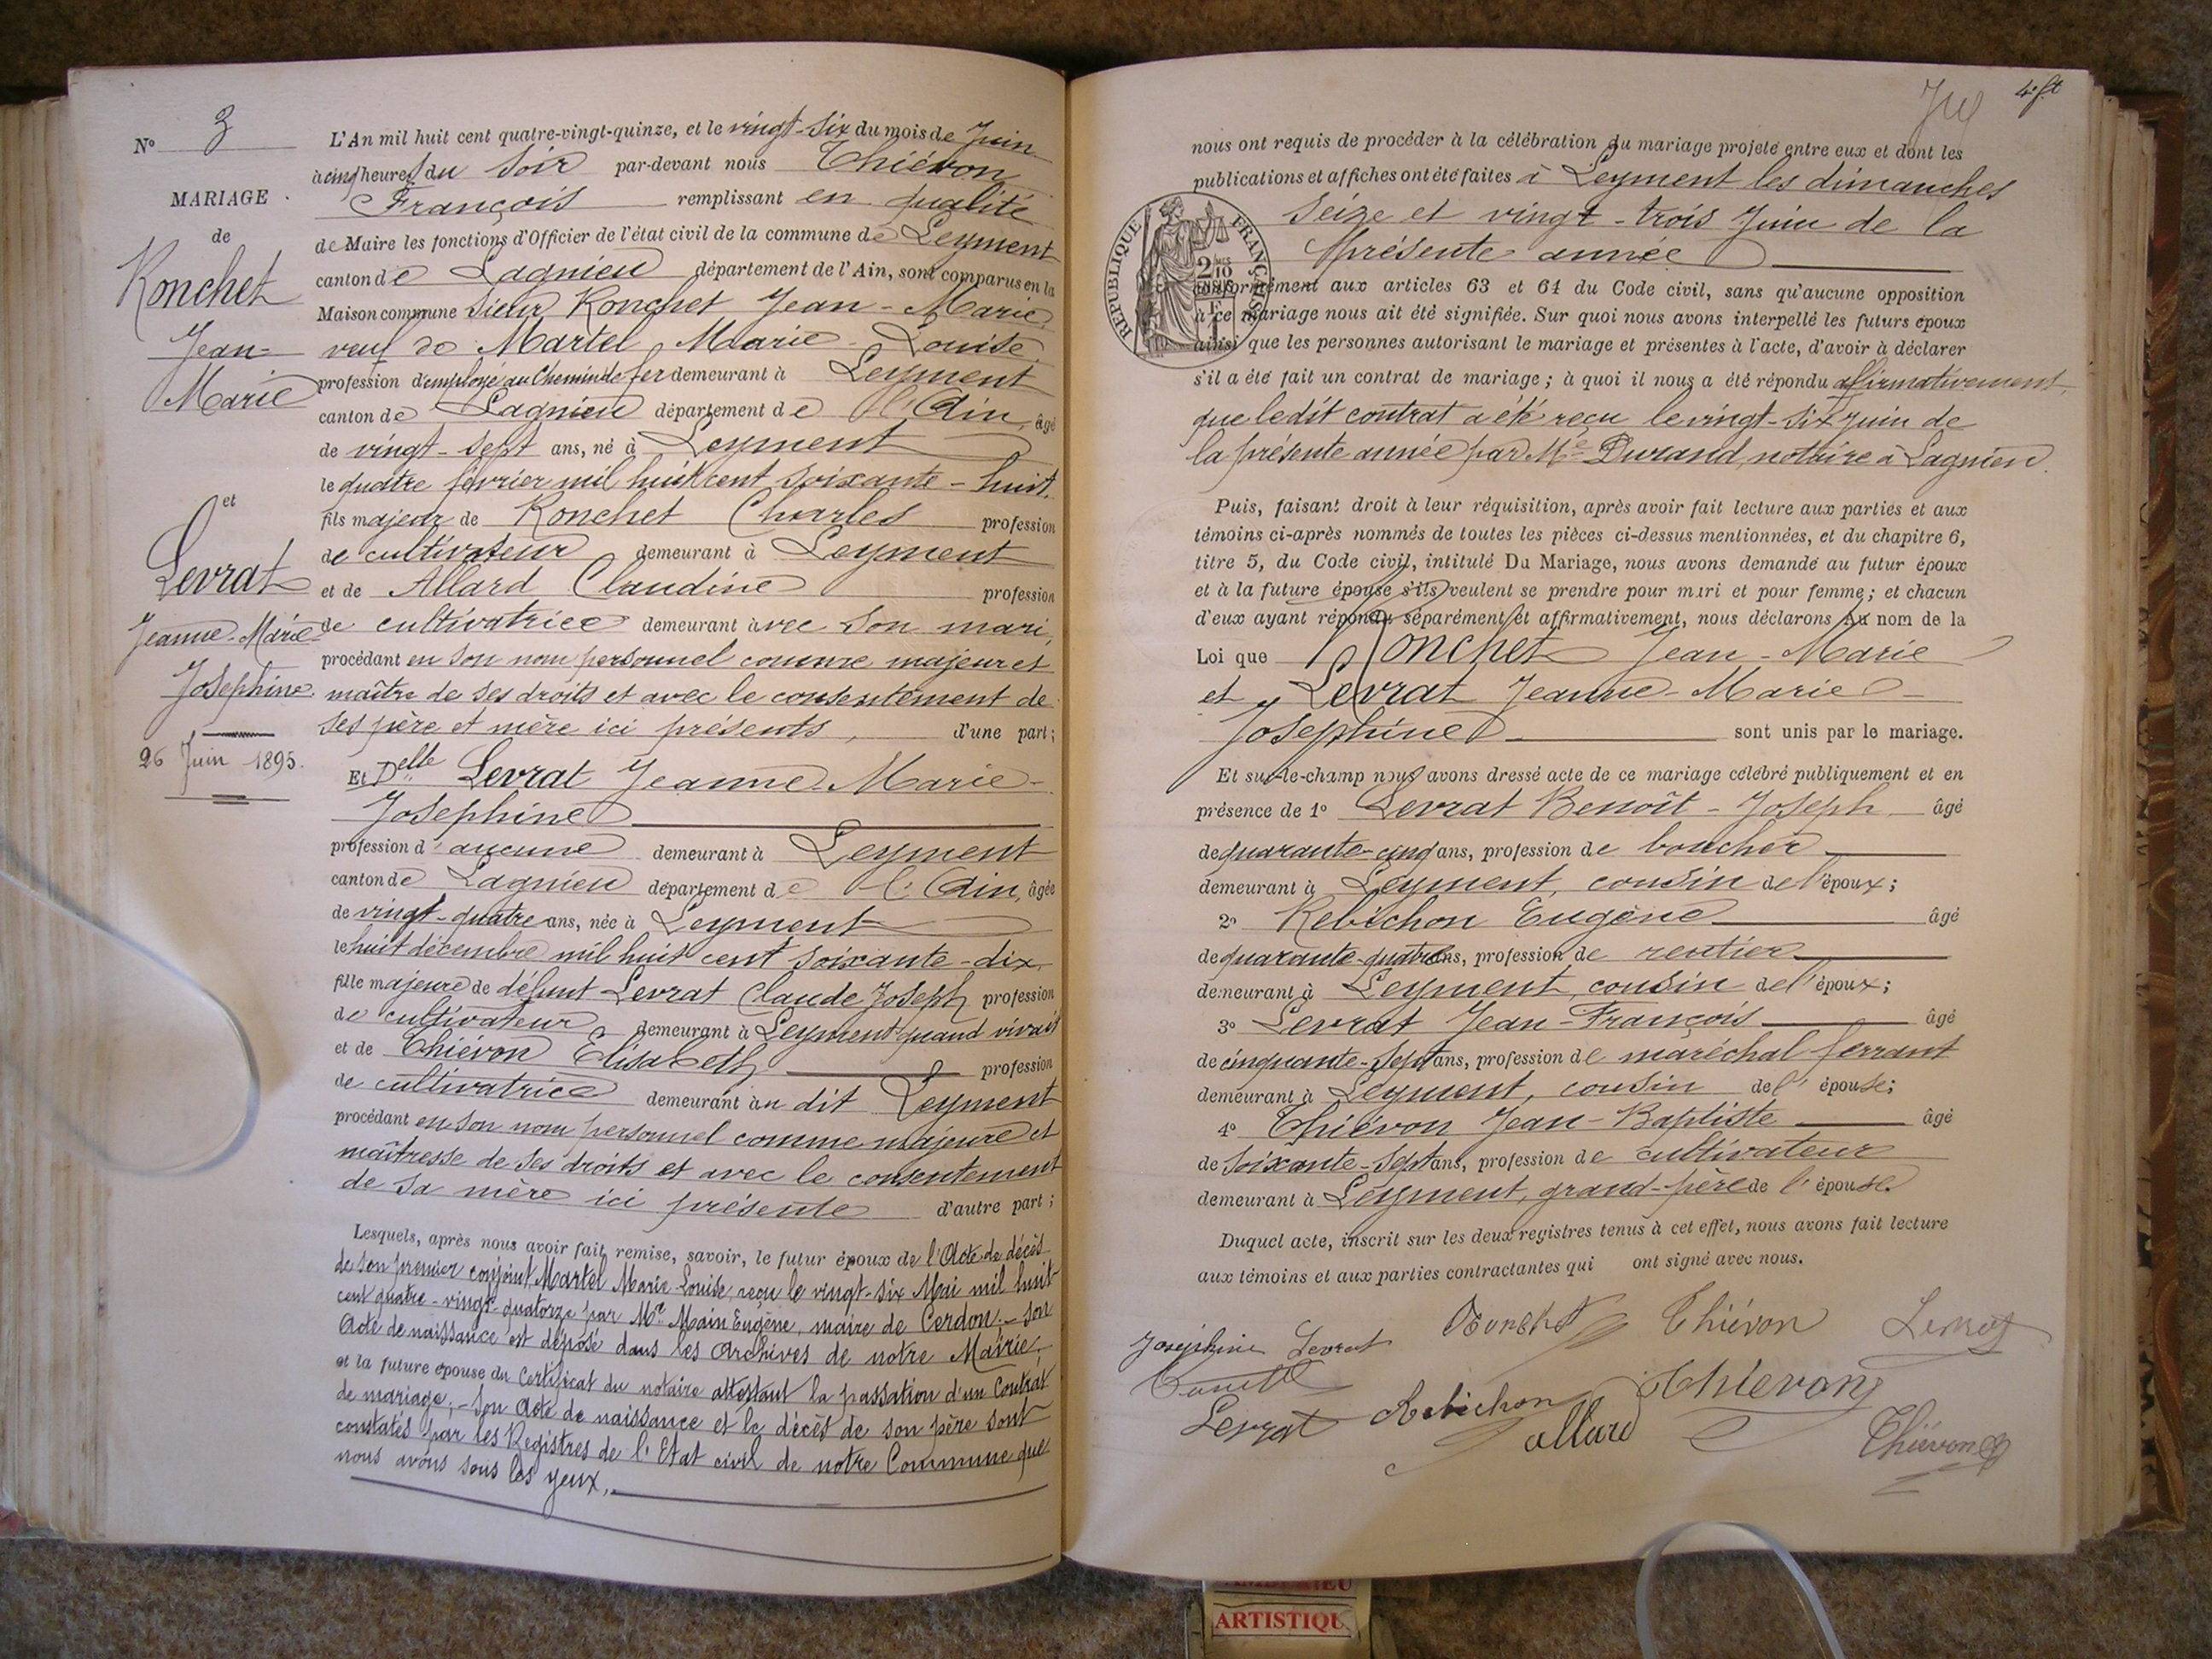 N° 3
MARIAGE
de
Ronchet
Jean-
Marie
et
Levrat
Jeanne-Marie-
Joséphine.
26 Juin 1895.
L'An mil huit cent quatre-vingt-quinze, et le vingt-six du mois de Juin
à cinq heures du Soir par-devant nous Thiévon
François remplissant en qualité
de Maire les fonctions d'Officier de l'état civil de la commune de Leyment
canton de Lagnieu département de l'Ain, sont comparus en la
Maison commune Sieur Ronchet Jean-Marie,
veuf de Martel Marie-Louise,
profession d'employé au Chemin de fer demeurant à Leyment
canton de Lagnieu département de l'Ain, âgé
de vingt-sept ans, né à Leyment
le quatre février mil huit cent soixante-huit,
fils majeur de Ronchet Charles profession
de cultivateur demeurant à Leyment
et de Allard Claudine profession
de cultivatrice demeurant avec son mari,
procédant en son nom personnel comme majeur et
maître de ses droits et avec le consentement de
ses père et mère ici présents, d'une part;
Et Delle Levrat Jeanne-Marie-
Joséphine
profession d'aucune demeurant à Leyment
canton de Lagnieu département de l'Ain, âgée
de vingt-quatre ans, née à Leyment
le huit décembre mil huit cent soixante-dix,
fille majeure de défunt Levrat Claude Joseph profession
de cultivateur demeurant à Leyment quand vivait
et de Thiévon Elisabeth profession
de cultivatrice demeurant au dit Leyment
procédant en son nom personnel comme majeure et
maîtresse de ses droits et avec le consentement
de sa mère ici présente d'autre part;
Lesquels, après nous avoir fait remise, savoir, le futur époux de l'Acte de décès
de son premier conjoint Martel Marie-Louise, reçu le vingt-six Mai mil huit
cent quatre-vingt-quatorze par Me Main Eugène, maire de Cerdon; - son
Acte de naissance est déposé dans les Archives de notre Mairie,
et la future épouse du Certificat du notaire attestant la passation d'un Contrat
de mariage; - Son Acte de naissance et le décès de son père sont
constatés par les Registres de l'Etat civil de notre Commune que
nous avons sous les yeux.
4e ft
nous ont requis de procéder à la célébration du mariage projeté entre eux et dont les
publications et affiches ont été faites à Leyment les dimanches
seize et vingt-trois Juin de la
présente année
RÉPUBLIQUE FRANÇAISE
conformément aux articles 63 et 64 du Code civil, sans qu'aucune opposition
à ce mariage nous ait été signifiée. Sur quoi nous avons interpellé les futurs époux
ainsi que les personnes autorisant le mariage et présentes à l'acte, d'avoir à déclarer
s'il a été fait un contrat de mariage; à quoi il nous a été répondu afirmativement,
que ledit contrat a été reçu le vingt-six juin de
la présente année par Me Durand, notaire à Lagnieu.
Puis, faisant droit à leur réquisition, après avoir fait lecture aux parties et aux
témoins ci-après nommés de toutes les pièces ci-dessus mentionnées, et du chapitre 6,
titre 5, du Code civil, intitulé Du Mariage, nous avons demandé au futur époux
et à la future épouse s'ils veulent se prendre pour mari et pour femme; et chacun
d'eux ayant répondu séparément et affirmativement, nous déclarons Au nom de la
Loi que Ronchet Jean-Marie
et Levrat Jeanne-Marie-
Joséphine sont unis par le mariage.
Et sur-le-champ nous avons dressé acte de ce mariage célébré publiquement et en
présence de 1° Levrat Benoît-Joseph âgé
de quarante-cinq ans, profession de boucher
demeurant à Leyment, cousin de l'époux;
2° Rebichon Eugène âgé
de quarante-quatre ans, profession de rentier
demeurant à Leyment, cousin de l'époux;
3° Levrat Jean-François âgé
de cinquante-sept ans, profession de maréchal ferrant
demeurant à Leyment, cousin de l'épouse;
4° Thiévon Jean-Baptiste âgé
de soixante-sept ans, profession de cultivateur
demeurant à Leyment, grand-père de l'épouse.
Duquel acte, inscrit sur les deux registres tenus à cet effet, nous avons fait lecture
aux témoins et aux parties contractantes qui ont signé avec nous.
Joséphine Levrat Ronchet Thiévon Levrat
Levrat Rebichon Allard Thievon
Thiévon
ARTISTIQU